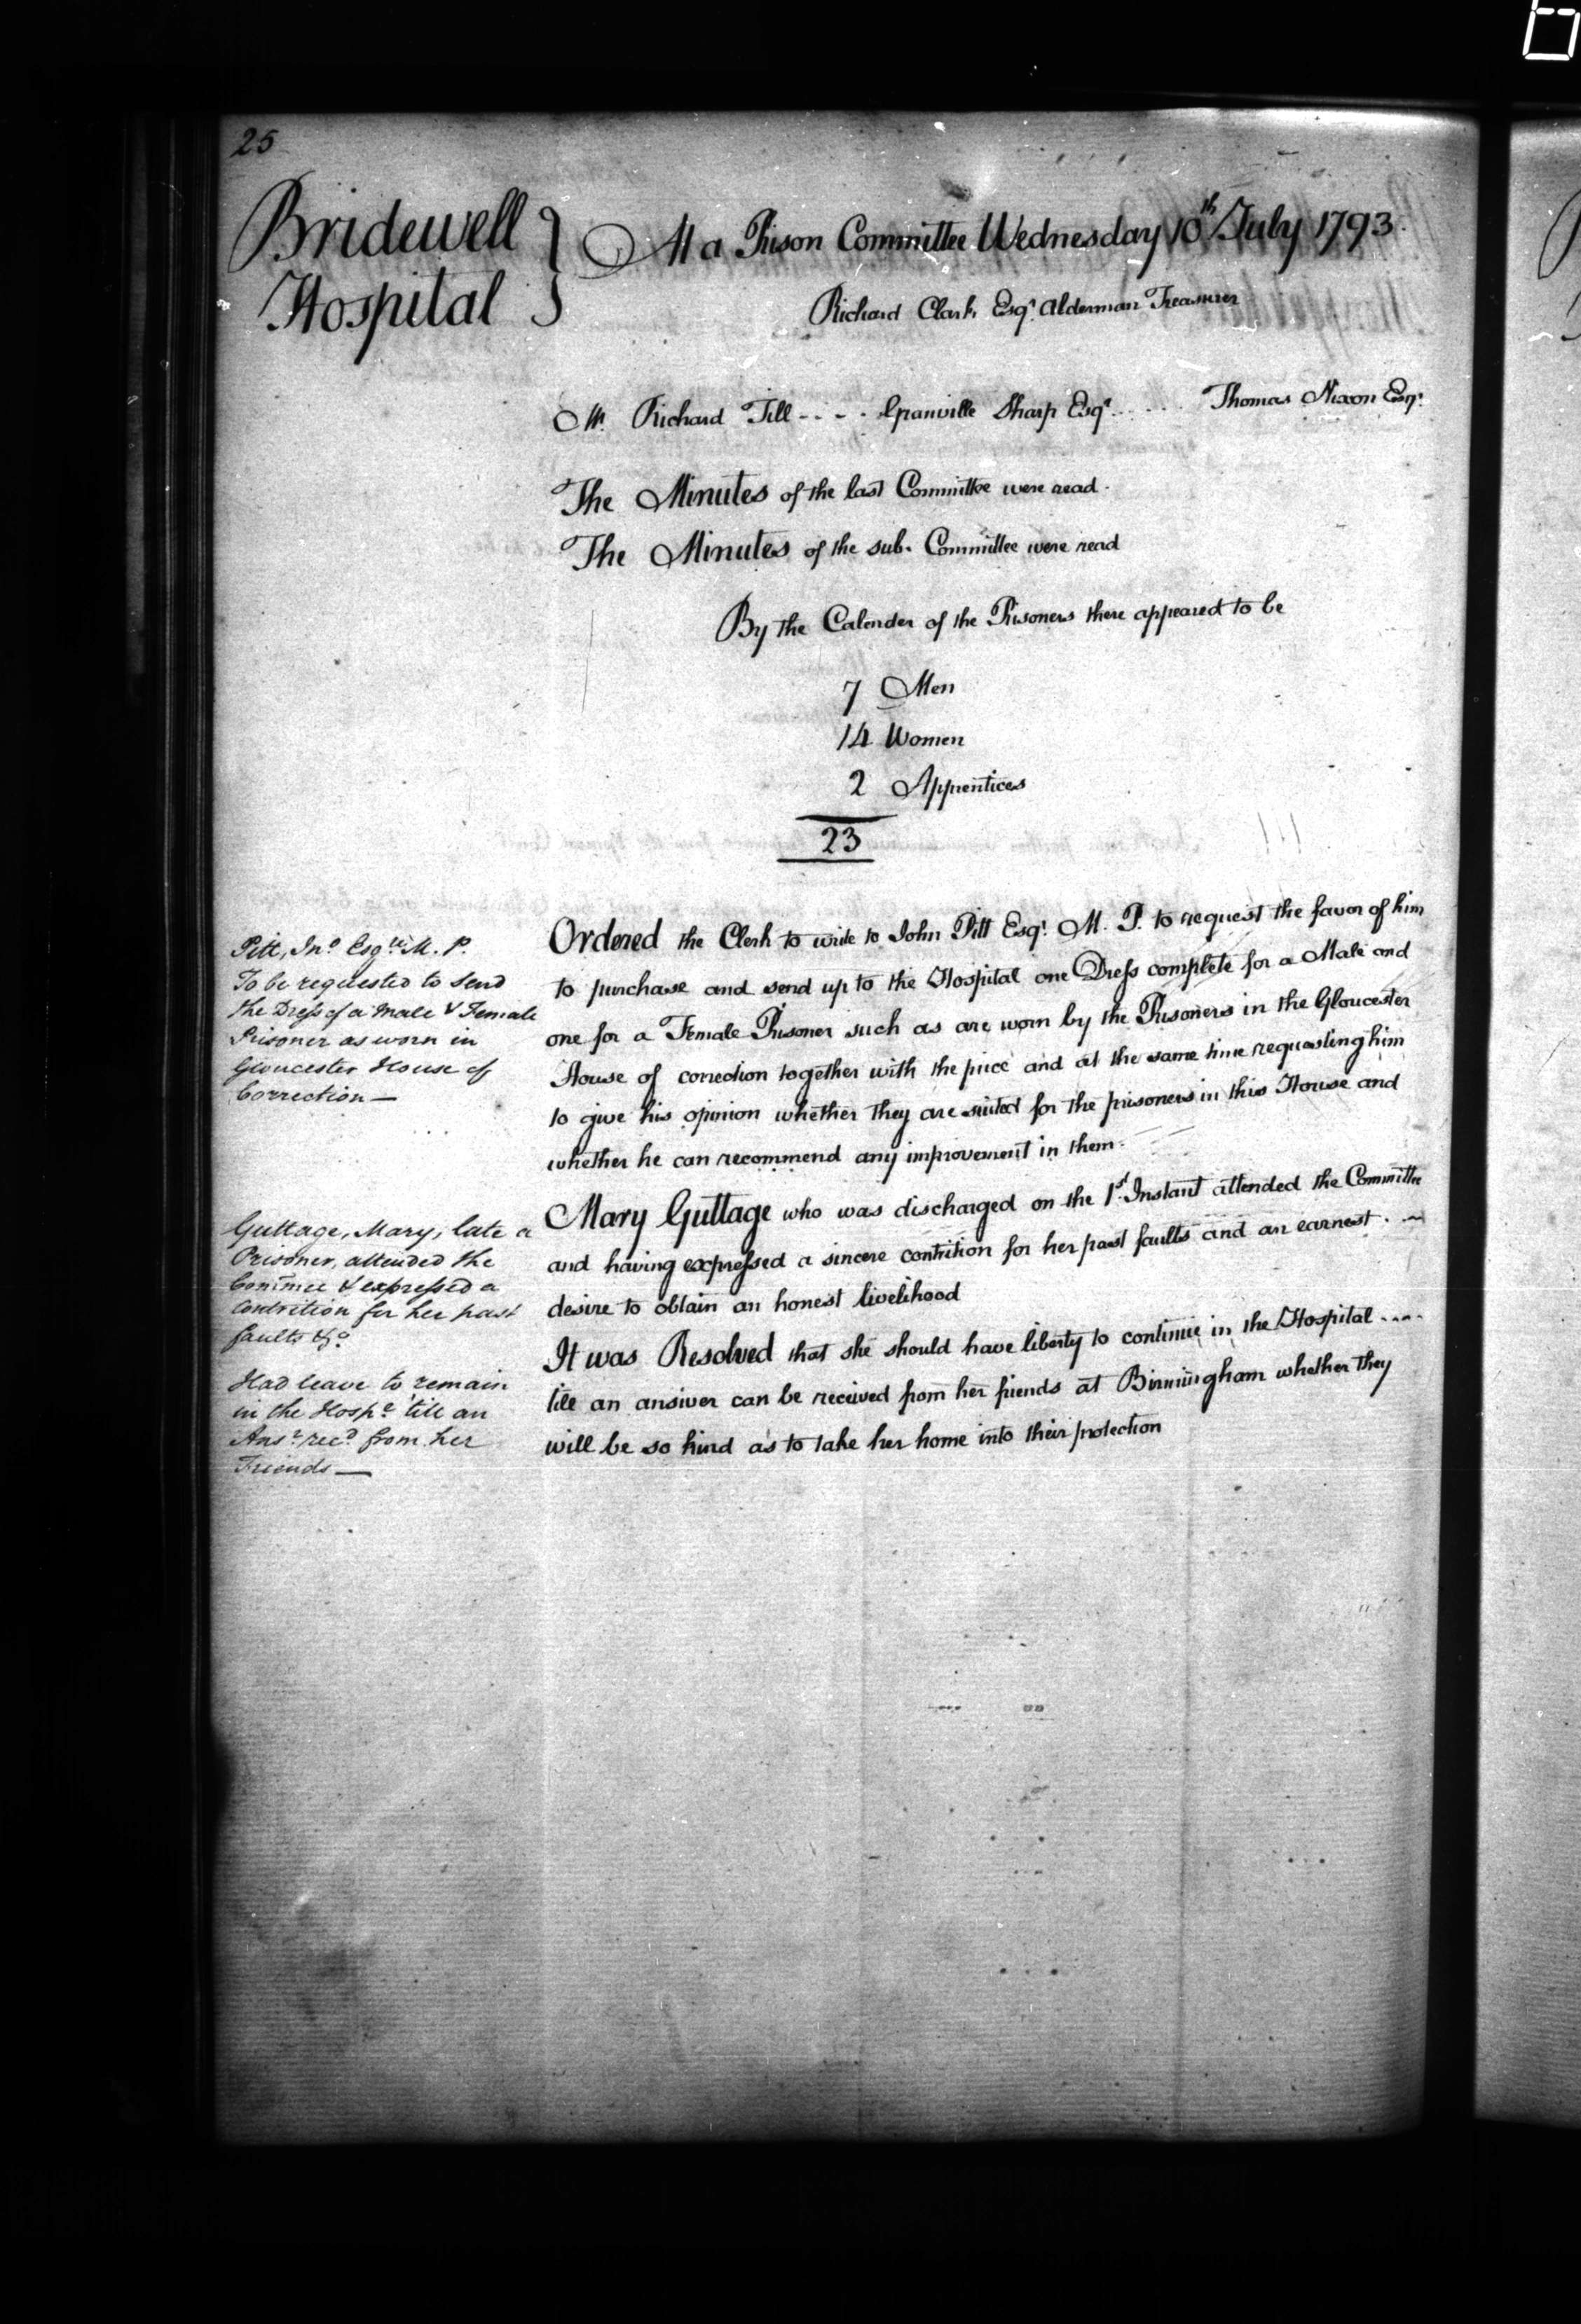 25
Bridewell
Hospital
At a Prison Committee Wednesday 10th July 1793.
Richard Clark Esqr. Alderman Treasurer
Mr. Richard Till - - - . Granville Sharp Esqr. . . . . . Thomas Nixon Esqr.
The Minutes of the last Committee were read.
The Minutes of the sub. Committee were read
By the Calender of the Prisoners there appeared to be
7 Men
14 Women
2 Apprentices
23
Pitt, Jno. Esqre. M. P.
To be requested to send
the Dress of a Male & Female
Prisoner as worn in
Gloucester House of
Correction —
Ordered the Clerk to write to John Pitt Esqr. M. P. to request the favor of him
to purchase and send up to the Hospital one Dress complete for a Male and
one for a Female Prisoner such as are worn by the Prisoners in the Gloucester
House of correction together with the price and at the same time requesting him
to give his opinion whether they are suited for the prisoners in this House and
whether he can recommend any improvement in them.
Guttage, Mary, late a
Prisoner, attended the
Commee & expressed a
contrition for her past
faults &c.
Had leave to remain
in the Hospl. till an
Ansr. recd. from her
Friends —
Mary Guttage who was discharged on the 1st. Instant attended the Committee
and having expressed a sincere contrition for her past faults and an earnest
desire to obtain an honest livelihood
It was Resolved that she should have liberty to continue in the Hospital ....
till an answer can be received from her friends at Birmingham whether they
will be so kind as to take her home into their protection